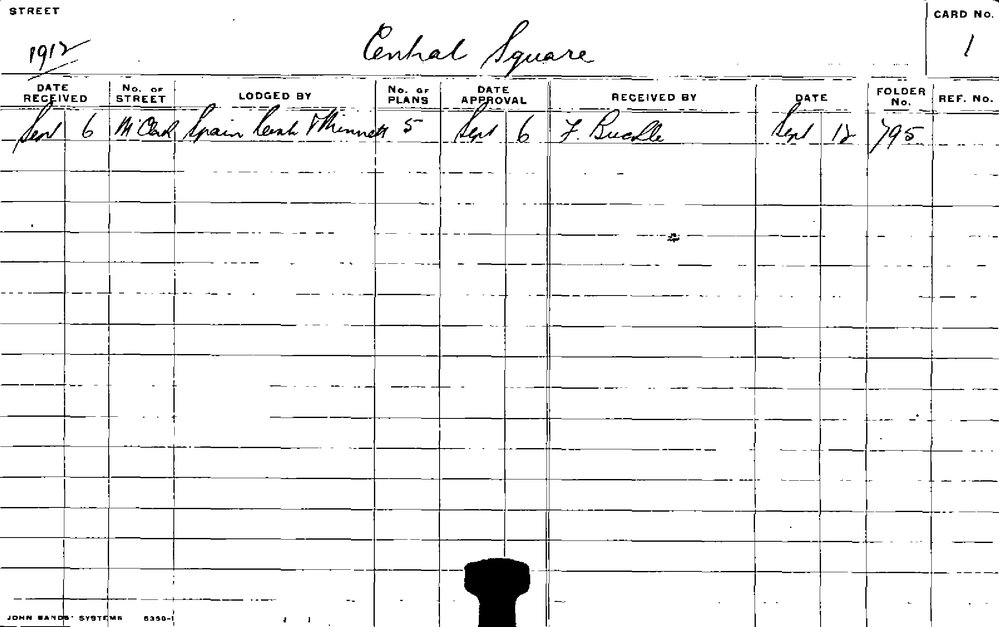 STREET
CARD No.
1912 Central Square 1
DATE RECEIVED No. OF STREET LODGED BY No. OF PLANS DATE APPROVAL RECEIVED BY DATE FOLDER No. REF. No.
Sept 6 Spain Cosh & Minnett 5 Sept 6 F. Buckle Sept 12 795
JOHN SANDS' SYSTEMS 5350-1